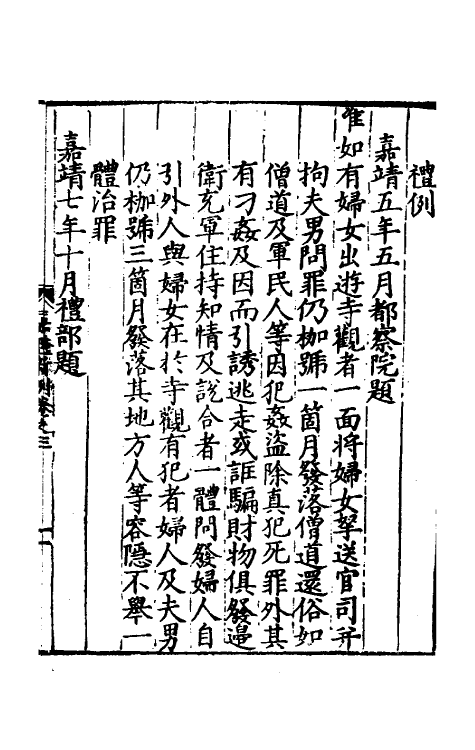 禮例
嘉靖五年五月都察院題
准如有婦女出遊寺觀者一面將婦女拏送官司并
拘夫男問罪仍枷號一箇月發落僧道還俗如
僧道及軍民人等因犯姦盜除真犯死罪外其
有刁姦及因而引誘逃走或誆騙財物俱發邊
衛充軍住持知情及說合者一體問發婦人自
引外人與婦女在於寺觀有犯者婦人及夫男
仍枷號三箇月發落其地方人等容隱不舉一
體治罪
嘉靖七年十月禮部題